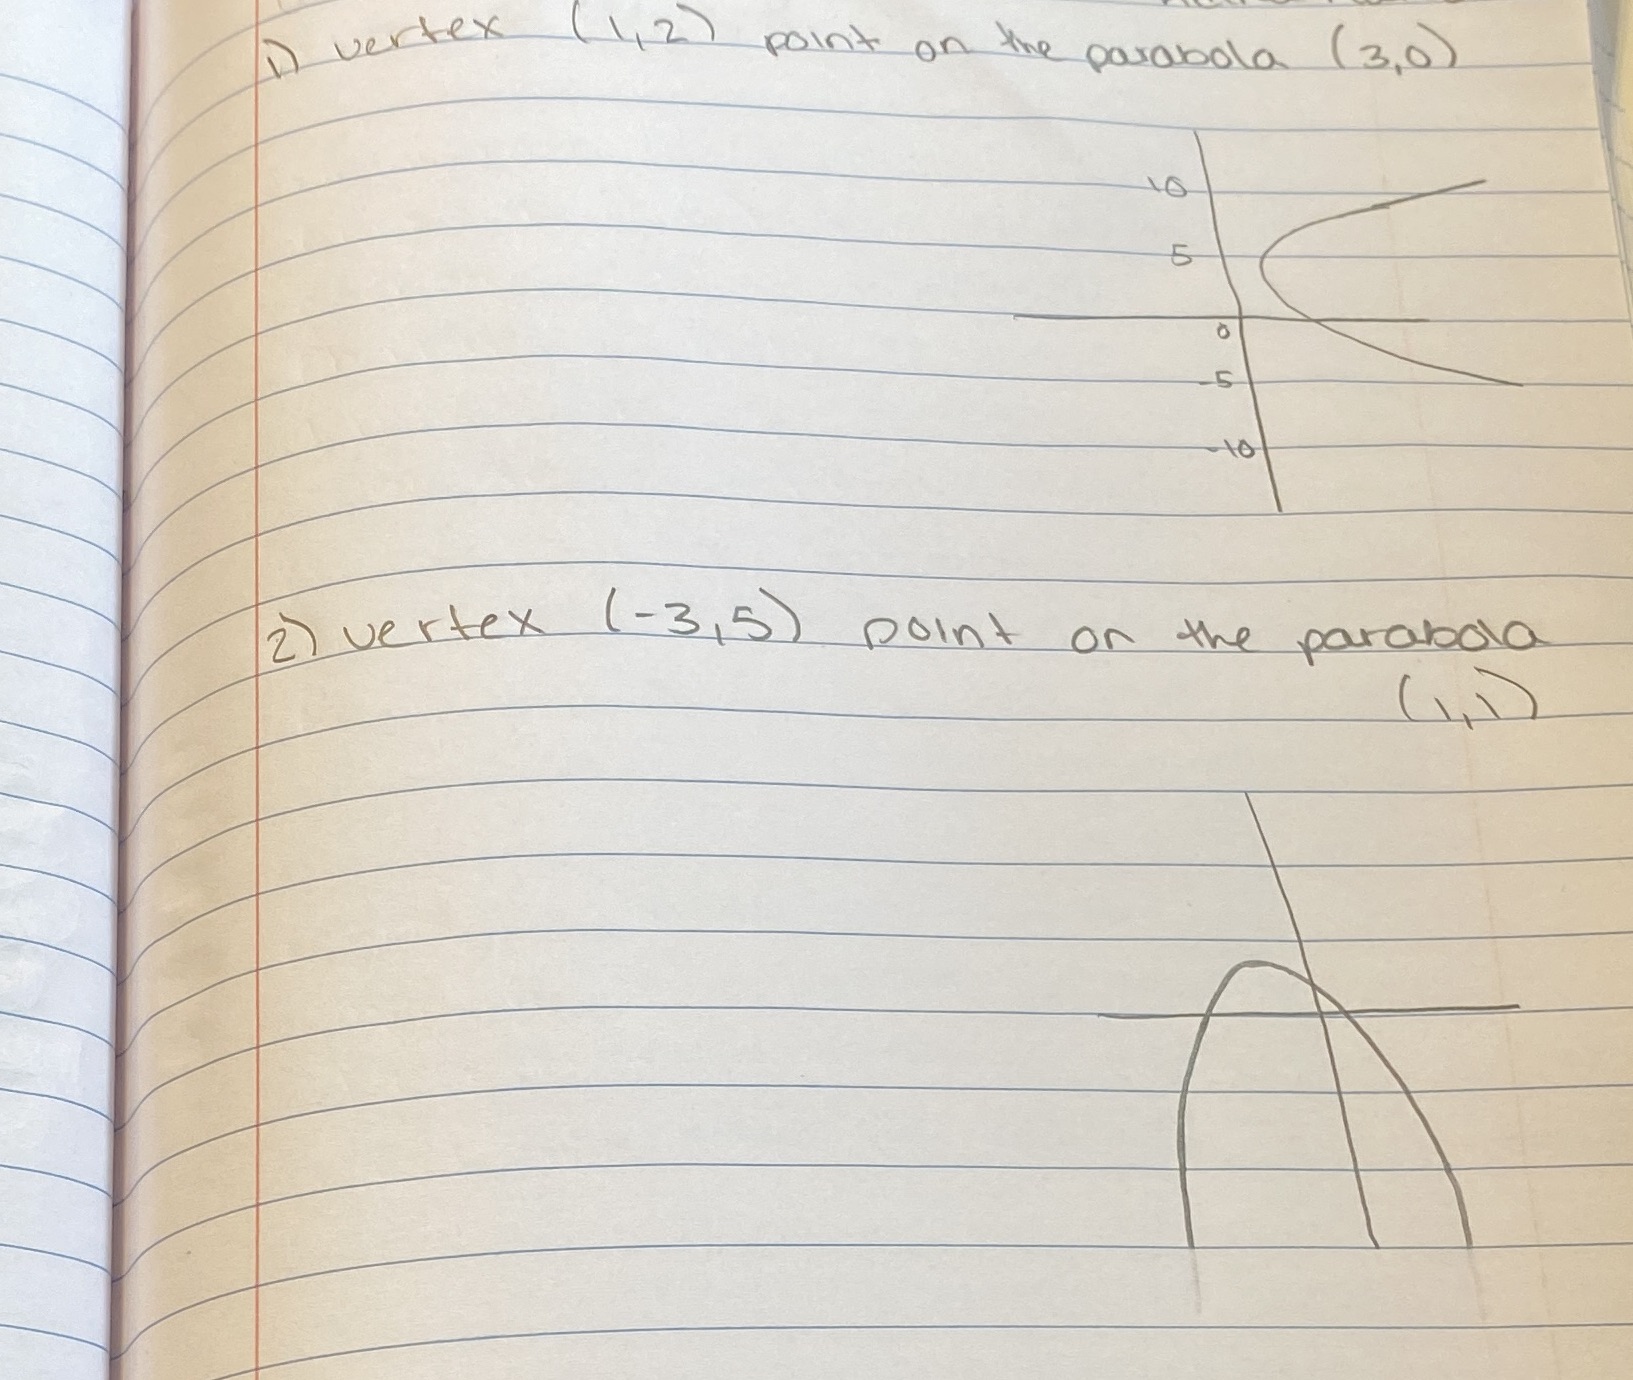 1) vertex (1,2) point on the parabola (3,0)
10
5
0
-5
-10
2) vertex (-3,5) point on the parabola
(1,1)